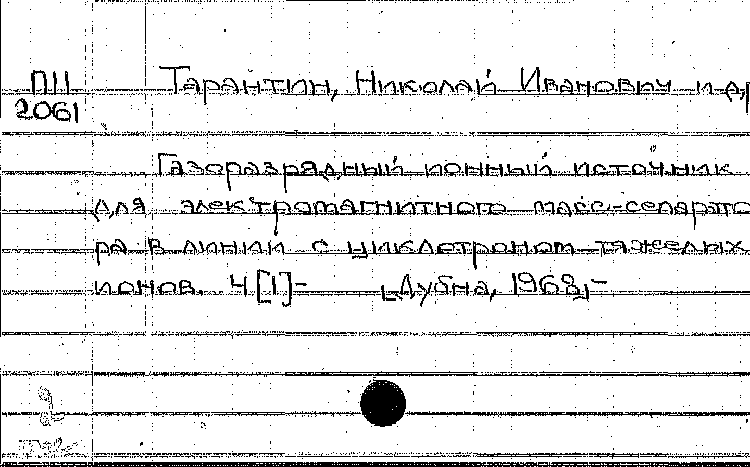 П11
2061
Тарантин, Николай Иванович и др
Газоразрядный ионный источник
для электромагнитного масс-сепарато
ра в линии с циклотроном тяжелых
ионов. Ч[1]- Дубна, 1968,-
2